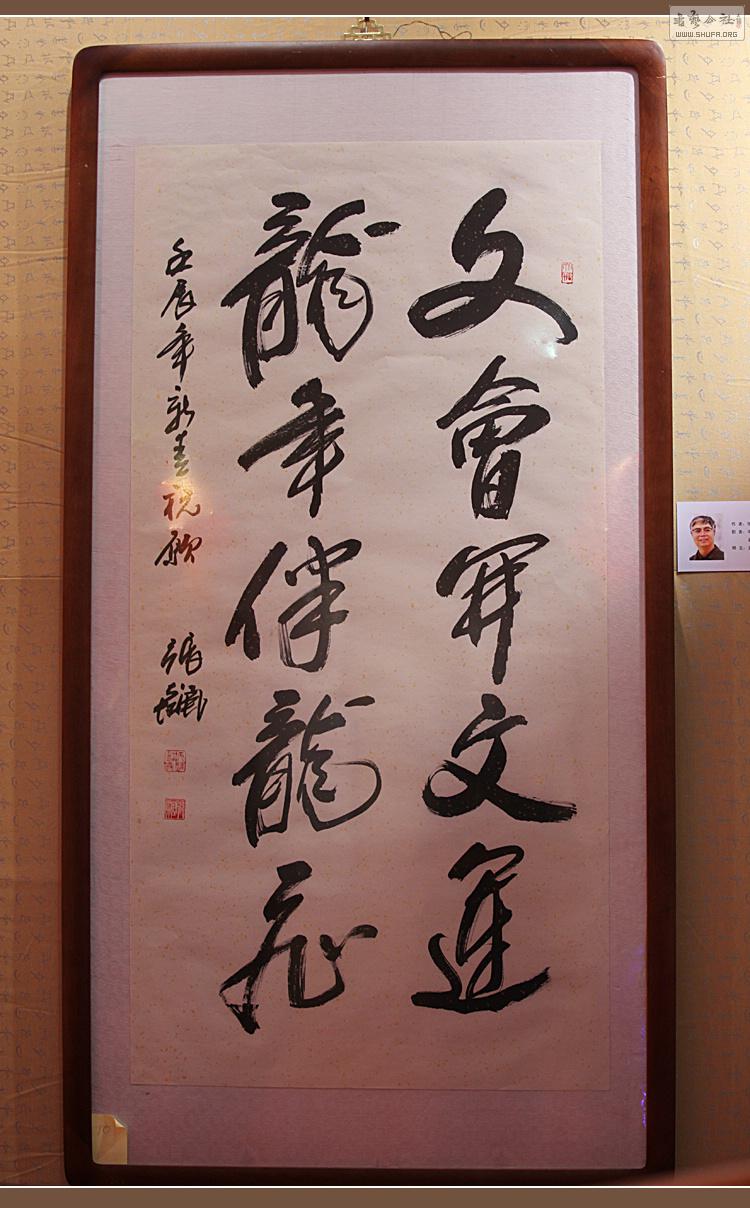 文會開文運
龍年伴龍飛
壬辰年新春祝願
張
书艺公社
WWW.SHUFA.ORG
10